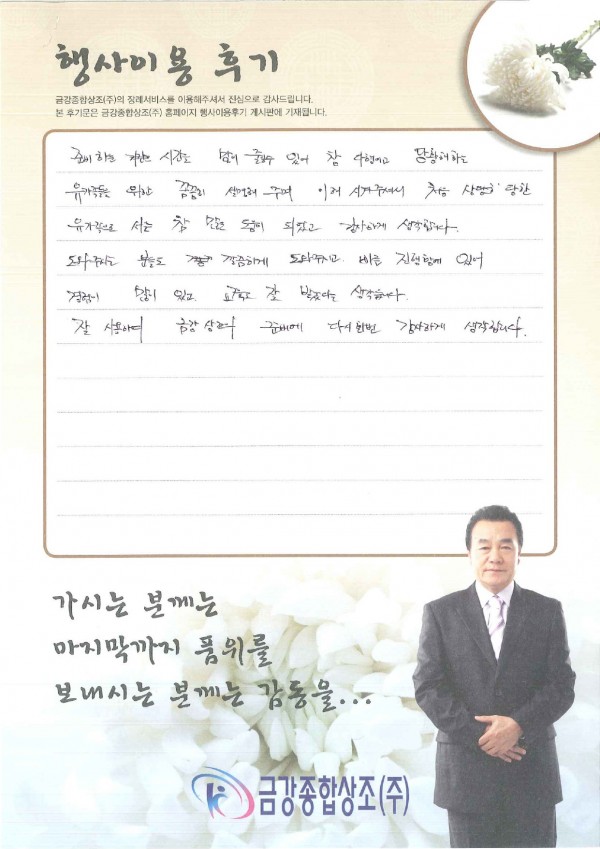 행사이용 후기
금강종합상조(주)의 장례서비스를 이용해주셔서 진심으로 감사드립니다.
본 후기문은 금강종합상조(주) 홈페이지 행사이용후기 게시판에 기재됩니다.
준비 하는 시간도 많이 줄일수 있어 참 다행이고 당황해 하는
유가족들을 위한 꼼꼼히 설명해 주며 이어 처음 당한
유가족으로 서는 참 많은 도움이 되었고 감사하게 생각합니다.
도와주시는 분들도 깔끔하게 도와주시고. 바른 진행함에 있어
많이 있고. 잘 생각합니다.
잘 사용하며 금강 상조 다시한번 감사하게 생각합니다.
가시는 분께는
마지막까지 품위를
보내시는 분께는 감동을...
금강종합상조(주)